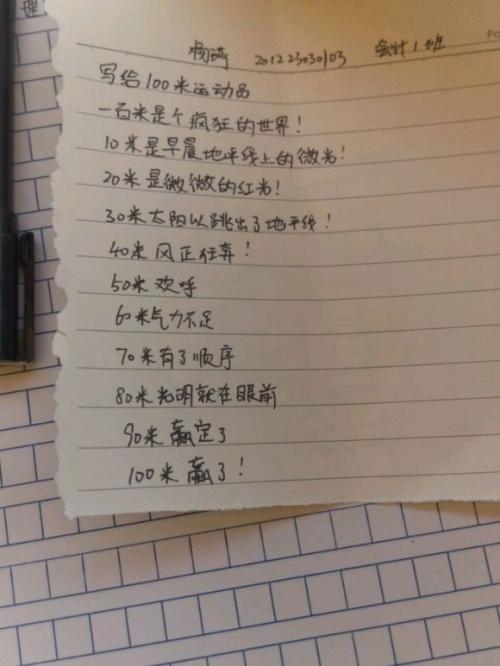 杨琦 201223030103 会计1班
写给100米运动员
一百米是个疯狂的世界!
10米是早晨地平线上的微光!
20米是微微的红光!
30米太阳以跳出了地平线!
40米风正狂奔!
50米欢呼
60米气力不足
70米有了顺序
80米光明就在眼前
90米赢定了
100米赢了!